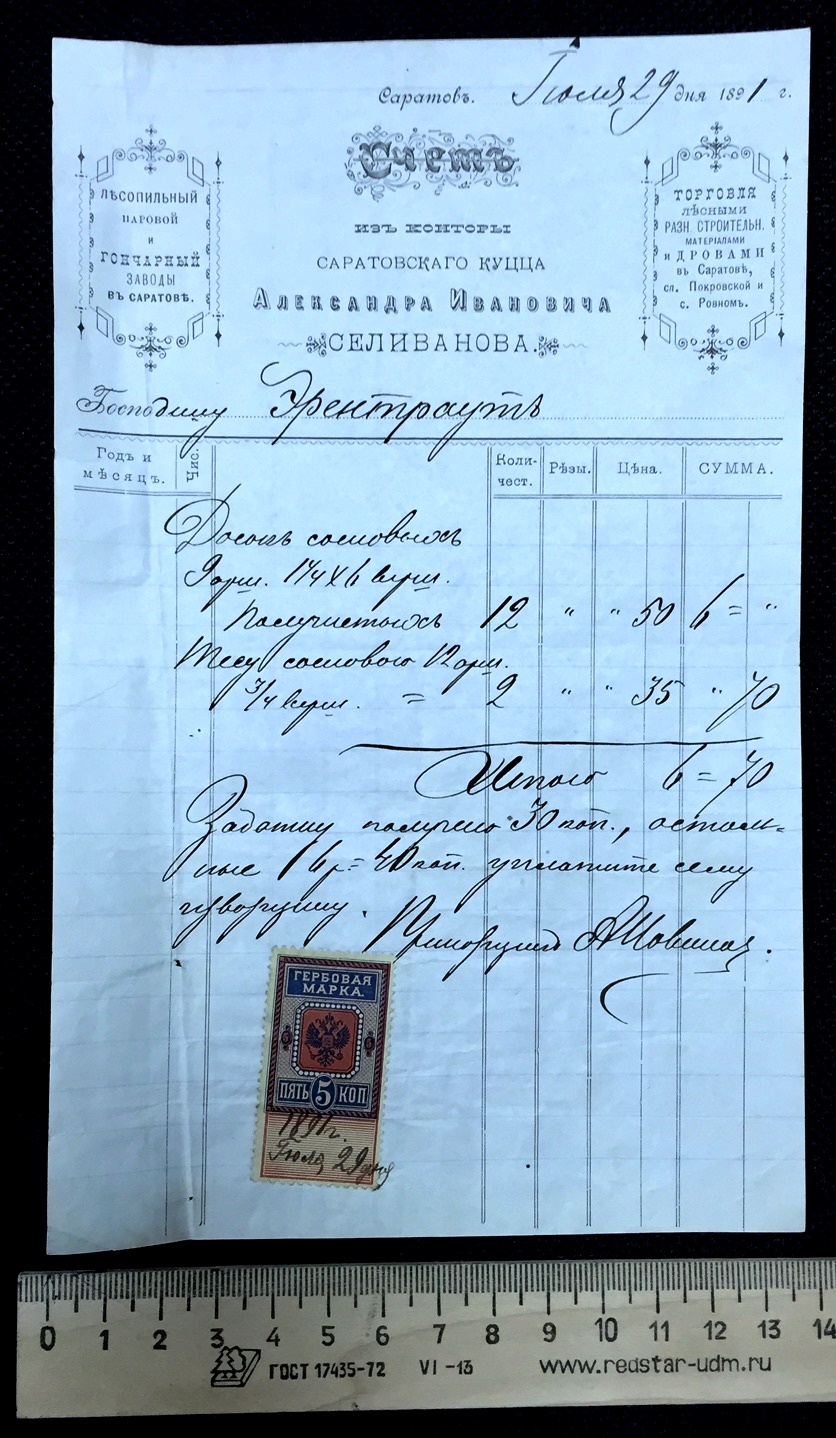 Саратовъ. Іюля 29 дня 1891 г.
Счетъ
ИЗЪ КОНТОРЫ
САРАТОВСКАГО КУПЦА
АЛЕКСАНДРА ИВАНОВИЧА
СЕЛИВАНОВА.
ЛѢСОПИЛЬНЫЙ
ПАРОВОЙ
И
ГОНЧАРНЫЙ
ЗАВОДЫ
ВЪ САРАТОВѢ.
ТОРГОВЛЯ
ЛѢСНЫМИ
РАЗН. СТРОИТЕЛЬН.
МАТЕРІАЛАМИ
И ДРОВАМИ
въ Саратовѣ,
сл. Покровской и
с. Ровномъ.
Господину Эрентраутъ
Годъ и мѣсяцъ. Чис. Коли-чест. Рѣзы. Цѣна. СУММА.
Досокъ сосновыхъ
9 арш. 1 1/4 X 6 верш.
Получистыхъ 12 " " 50 6 = "
Тесу сосноваго 12 арш.
3/4 верш. = 2 " " 35 " 70
Итого 6 = 70
Задатку получено 30 коп., осталь-
ные 6 р = 40 коп. уплатите сему
Прикащикъ
ГЕРБОВАЯ
МАРКА.
ПЯТЬ 5 КОП
1891 г.
Іюля 29 дня
0 1 2 3 4 5 6 7 8 9 10 11 12 13 14
ГОСТ 17435-72 VI -13 www.redstar-udm.ru